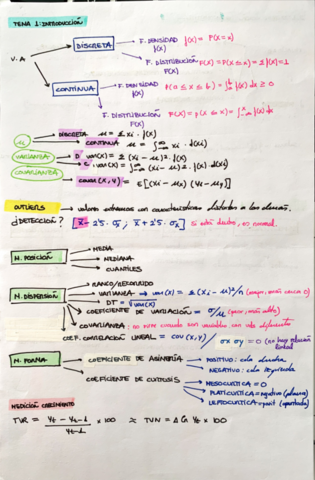 TEMA 1: INTRODUCCIÓN
V.A
DISCRETA
F. DENSIDAD f(x) = P(X=x)
F. DISTRIBUCIÓN F(x) = P(X≤x) = Σ f(x) = 1
CONTÍNUA
F. DENSIDAD f(x) P(a ≤ x ≤ b) = ∫ f(x) dx ≥ 0
F. DISTRIBUCIÓN F(x) F(x) = P(X ≤ x) = ∫ f(x) dx
μ
DISCRETA μ = Σ xi · f(x)
CONTINUA μ = ∫ xi · f(xi)
VARIANZA
D var(x) = Σ (xi - μ)² · f(x)
C var(x) = ∫ (xi - μ)² · f(x) · d(xi)
COVARIANZA
covar(x, y) = E[(xi - μx) (yi - μy)]
OUTLIERS → valores extremos con características distintas a los demás.
¿DETECCIÓN? [x̄ - 2'5 · σx ; x̄ + 2'5 · σx] Si está dentro, es normal
M. POSICIÓN
MEDIA
MEDIANA
CUANTILES
M. DISPERSIÓN
RANGO/RECORRIDO
VARIANZA → var(x) = Σ (xi - μ)²/n
DT = √var(x)
COEFICIENTE DE VARIACIÓN = σ/μ
COVARIANZA: no sirve cuando son variables con uds diferentes
COEF. CORRELACIÓN LINEAL = COV(x,y) / σx σy = 0 (no hay relación lineal)
M. FORMA
COEFICIENTE DE ASIMETRÍA
POSITIVO: cola derecha
NEGATIVO: cola izquierda
COEFICIENTE DE CURTOSIS
MESOCÚRTICA = 0
PLATICÚRTICA = negativa
LEPTOCÚRTICA = posit (apuntada)
MEDICIÓN CRECIMIENTO
TVR = Yt - Yt-1 / Yt-1 × 100 ≈ TVN = Δ ln Yt × 100